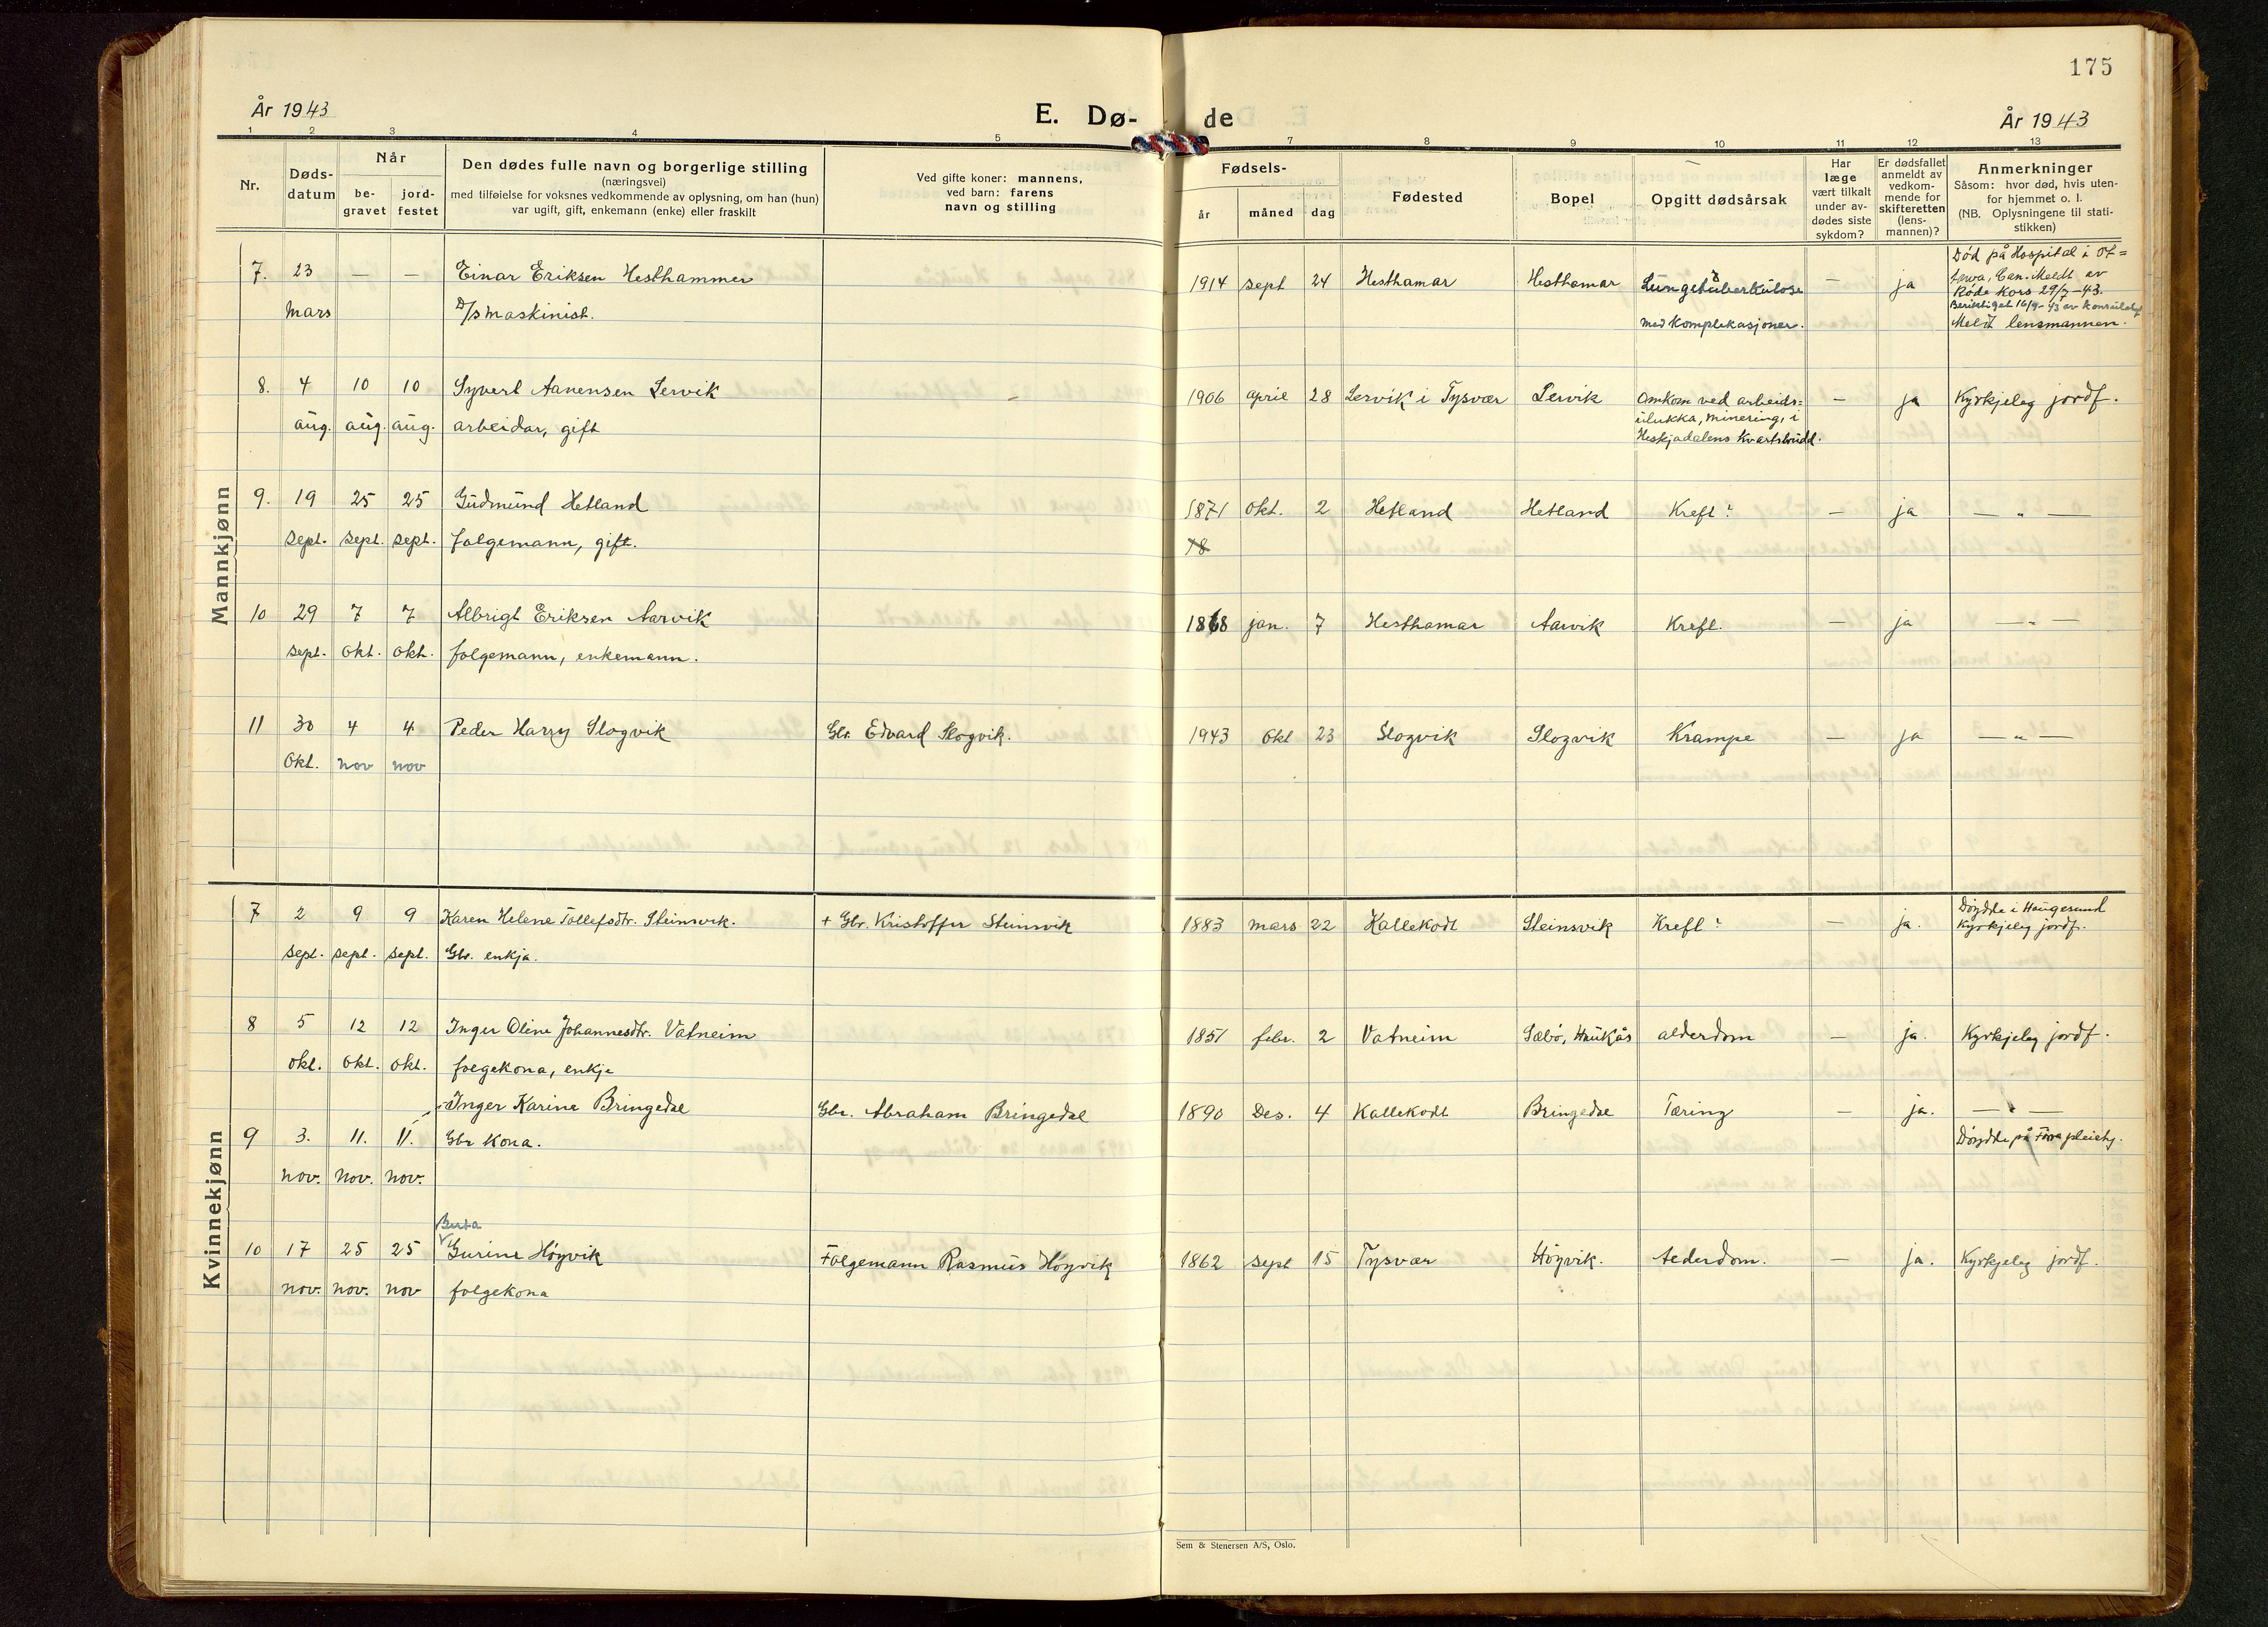 175
År 1943
E. Dø-
de
År 1943
1 2 3 4 5 7 8 9 10 11 12 13
Nr.
Døds-
datum
Når
be-
gravet
jord-
festet
Den dødes fulle navn og borgerlige stilling
(næringsvei)
med tilføielse for voksnes vedkommende av oplysning, om han (hun)
var ugift, gift, enkemann (enke) eller fraskilt
Ved gifte koner: mannens,
ved barn: farens
navn og stilling
Fødsels-
år måned dag
Fødested
Bopel
Opgitt dødsårsak
Har
læge
vært tilkalt
under av-
dødes siste
sykdom?
Er dødsfallet
anmeldt av
vedkom-
mende for
skifteretten
(lens-
mannen)?
Anmerkninger
Såsom: hvor død, hvis uten-
for hjemmet o. l.
(NB. Oplysningene til stati-
stikken)
Mannkjønn
7. 23 — — Einar Eriksen Hesthammer 1914 sept 24 Hesthamar Hesthamar Lungetuberkulose — ja Død på Hospital i Ot=
tawa, Can. Meldt av
Røde Kors 29/7-43.
Beriktiget 16/9-43 av konsulatet
mars D/s maskinist. med komplikasjoner. Meldt lensmannen.
8. 4 10 10 Syvert Aanensen Lervik — 1906 april 28 Lervik i Tysvær Lervik Omkom ved arbeids= — ja Kyrkjeleg jordf.
aug. aug. aug. arbeidar, gift ulukka, minering, i
Heskjadalens Kvartsbrudd.
9. 19 25 25 Gudmund Hetland 1871 okt. 2 Hetland Hetland Kreft? — ja — „ —
sept. sept. sept. folgemann, gift. 78
10 29 7 7 Albrigt Eriksen Aarvik 1868 jan. 7 Hesthamar Aarvik Kreft. — ja — „ —
sept. okt. okt. folgemann, enkemann.
11 30 4 4 Peder Harry Slogvik Gbr. Edvard Slogvik. 1943 okt 23 Slogvik Slogvik Krampe — ja — „ —
okt. nov nov
Kvinnekjønn
7 2 9 9 Karen Helene Tollefsdtr. Steinsvik. + Gbr. Kristoffer Steinsvik 1883 mars 22 Kallekodt Steinsvik Kreft? — ja. Døydde i Haugesund
Kyrkjeleg jordf.
sept. sept. sept. Gbr. enkja.
8 5 12 12 Inger Oline Johannesdtr. Vatneim 1851 febr. 2 Vatneim Sæbø, Haukås alderdom — ja. Kyrkjeleg jordf.
okt. okt. okt. folgekona, enkje
Inger Karine Bringedal Gbr. Abraham Bringedal 1890 Des. 4 Kallekodt Bringedal Tæring — ja. — „ —
9 3. 11. 11. Gbr kona. Døydde på Førre pleiehj.
nov. nov. nov.
Berta
10 17 25 25 Gurine Høyvik Folgemann Rasmus Høyvik 1862 sept 15 Tysvær Høyvik. Alderdom. — ja. Kyrkjeleg jordf.
nov. nov. nov folgekona
Sem & Stenersen A/S, Oslo.